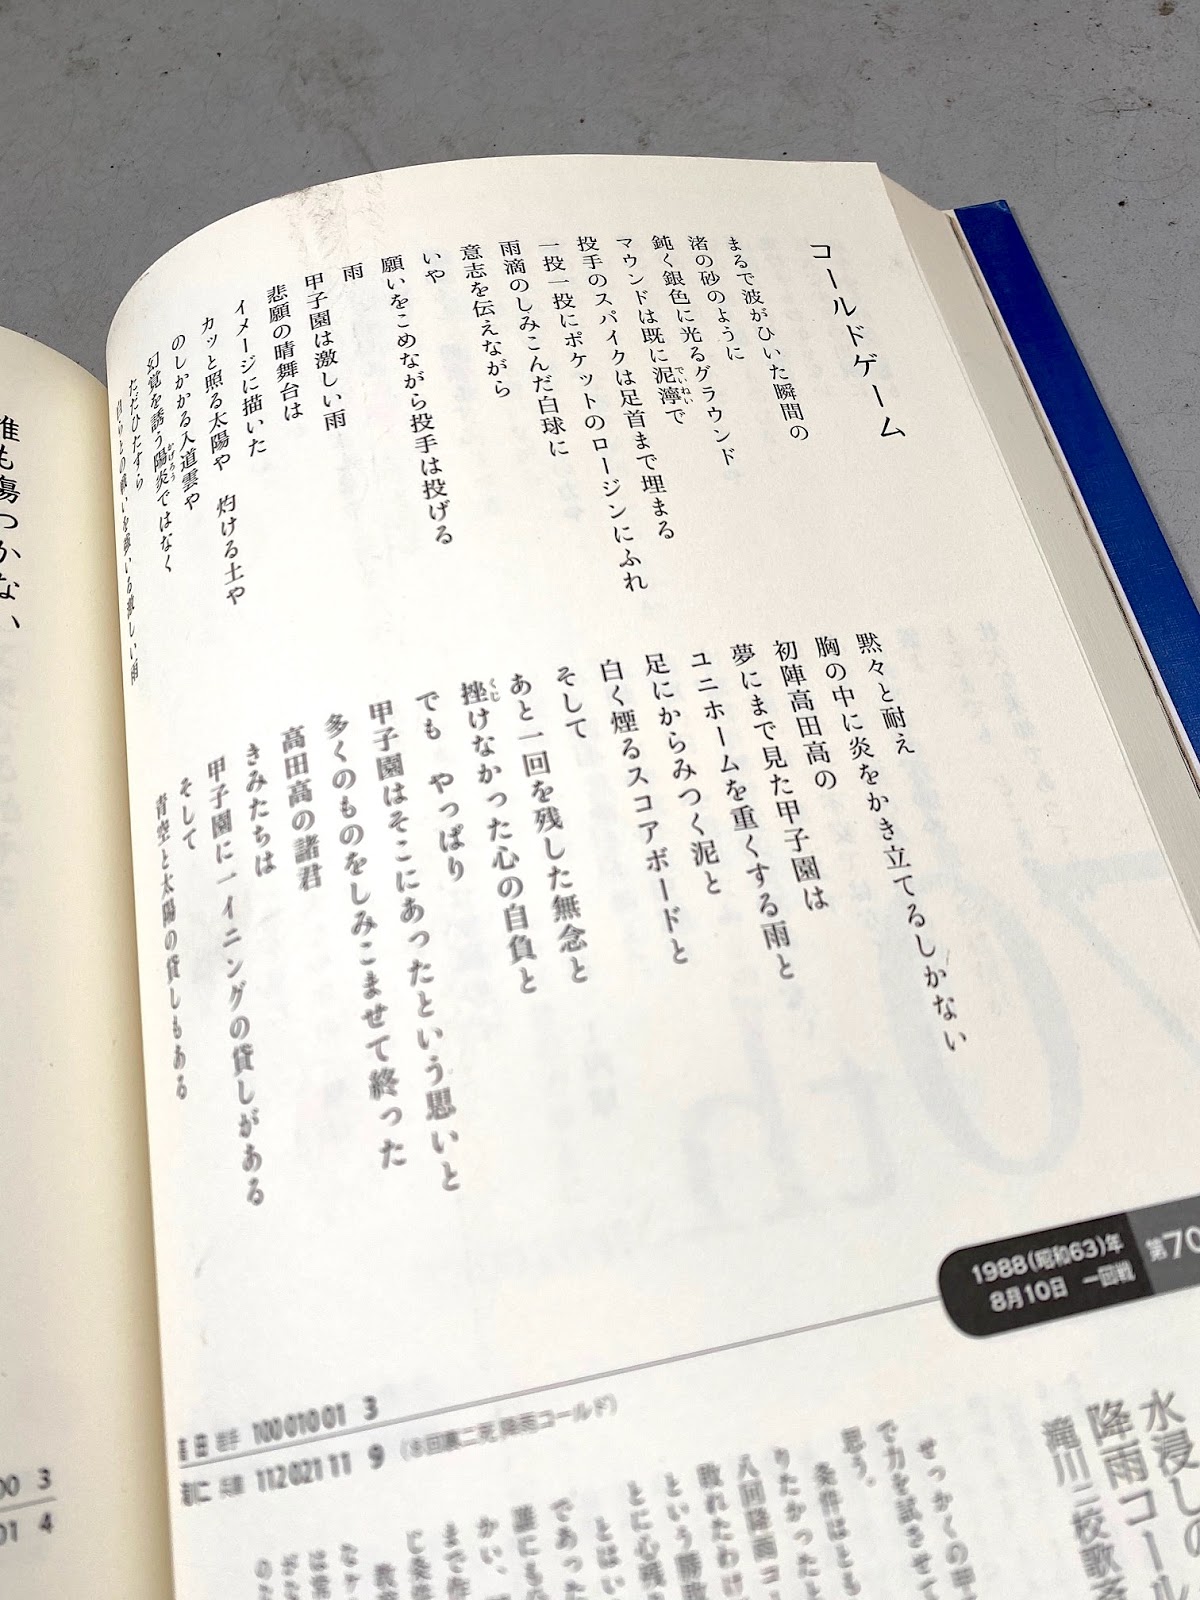 コールドゲーム
まるで波がひいた瞬間の
渚の砂のように
鈍く銀色に光るグラウンド
マウンドは既に泥濘で
でいねい
投手のスパイクは足首まで埋まる
一投一投にポケットのロージンにふれ
雨滴のしみこんだ白球に
意志を伝えながら
いや
願いをこめながら投手は投げる
雨
甲子園は激しい雨
悲願の晴舞台は
イメージに描いた
カッと照る太陽や 灼ける土や
のしかかる入道雲や
幻覚を誘う陽炎ではなく
かげろう
ただひたすら
との戦いを強いる激しい雨
黙々と耐え
胸の中に炎をかき立てるしかない
初陣高田高の
夢にまで見た甲子園は
ユニホームを重くする雨と
足にからみつく泥と
白く煙るスコアボードと
そして
あと一回を残した無念と
挫けなかった心の自負と
くじ
でも やっぱり
甲子園はそこにあったという思いと
多くのものをしみこませて終った
高田高の諸君
きみたちは
甲子園に一イニングの貸しがある
そして
青空と太陽の貸しもある
1988(昭和63)年
8月10日 一回戦
第70
田 岩手 100 010 01 3
仁 兵庫 112 021 11 9 (8回裏二死降雨コールド)
水浸しの
降雨コール
滝川二校歌斉
せっかくの甲
で力を試させて
思う。
条件はとも
りたかったと
八回降雨コー
敗れたわけ
という勝敗
とに心残り
とはい
であった
誰にもの
かい、
まで作
誰も傷つかない、
00 3
01 4